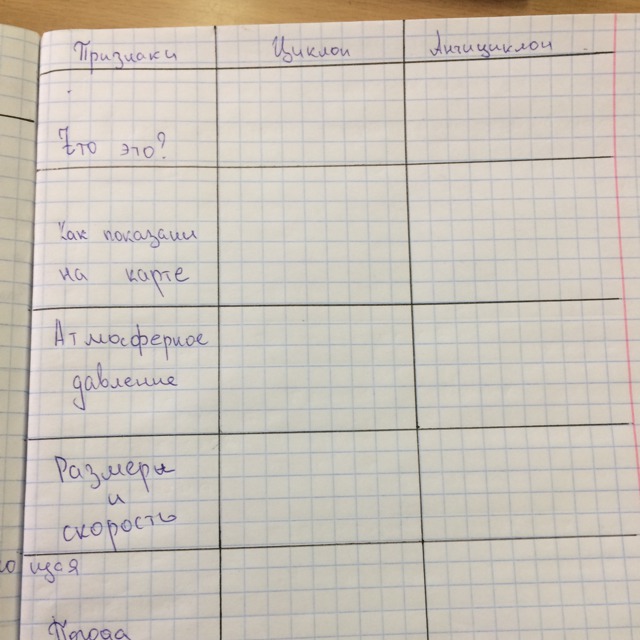 Признаки
Циклон
Антициклон
Что это?
Как показаны
на карте
Атмосферное
давление
Размеры
и
скорость
щая
Погода